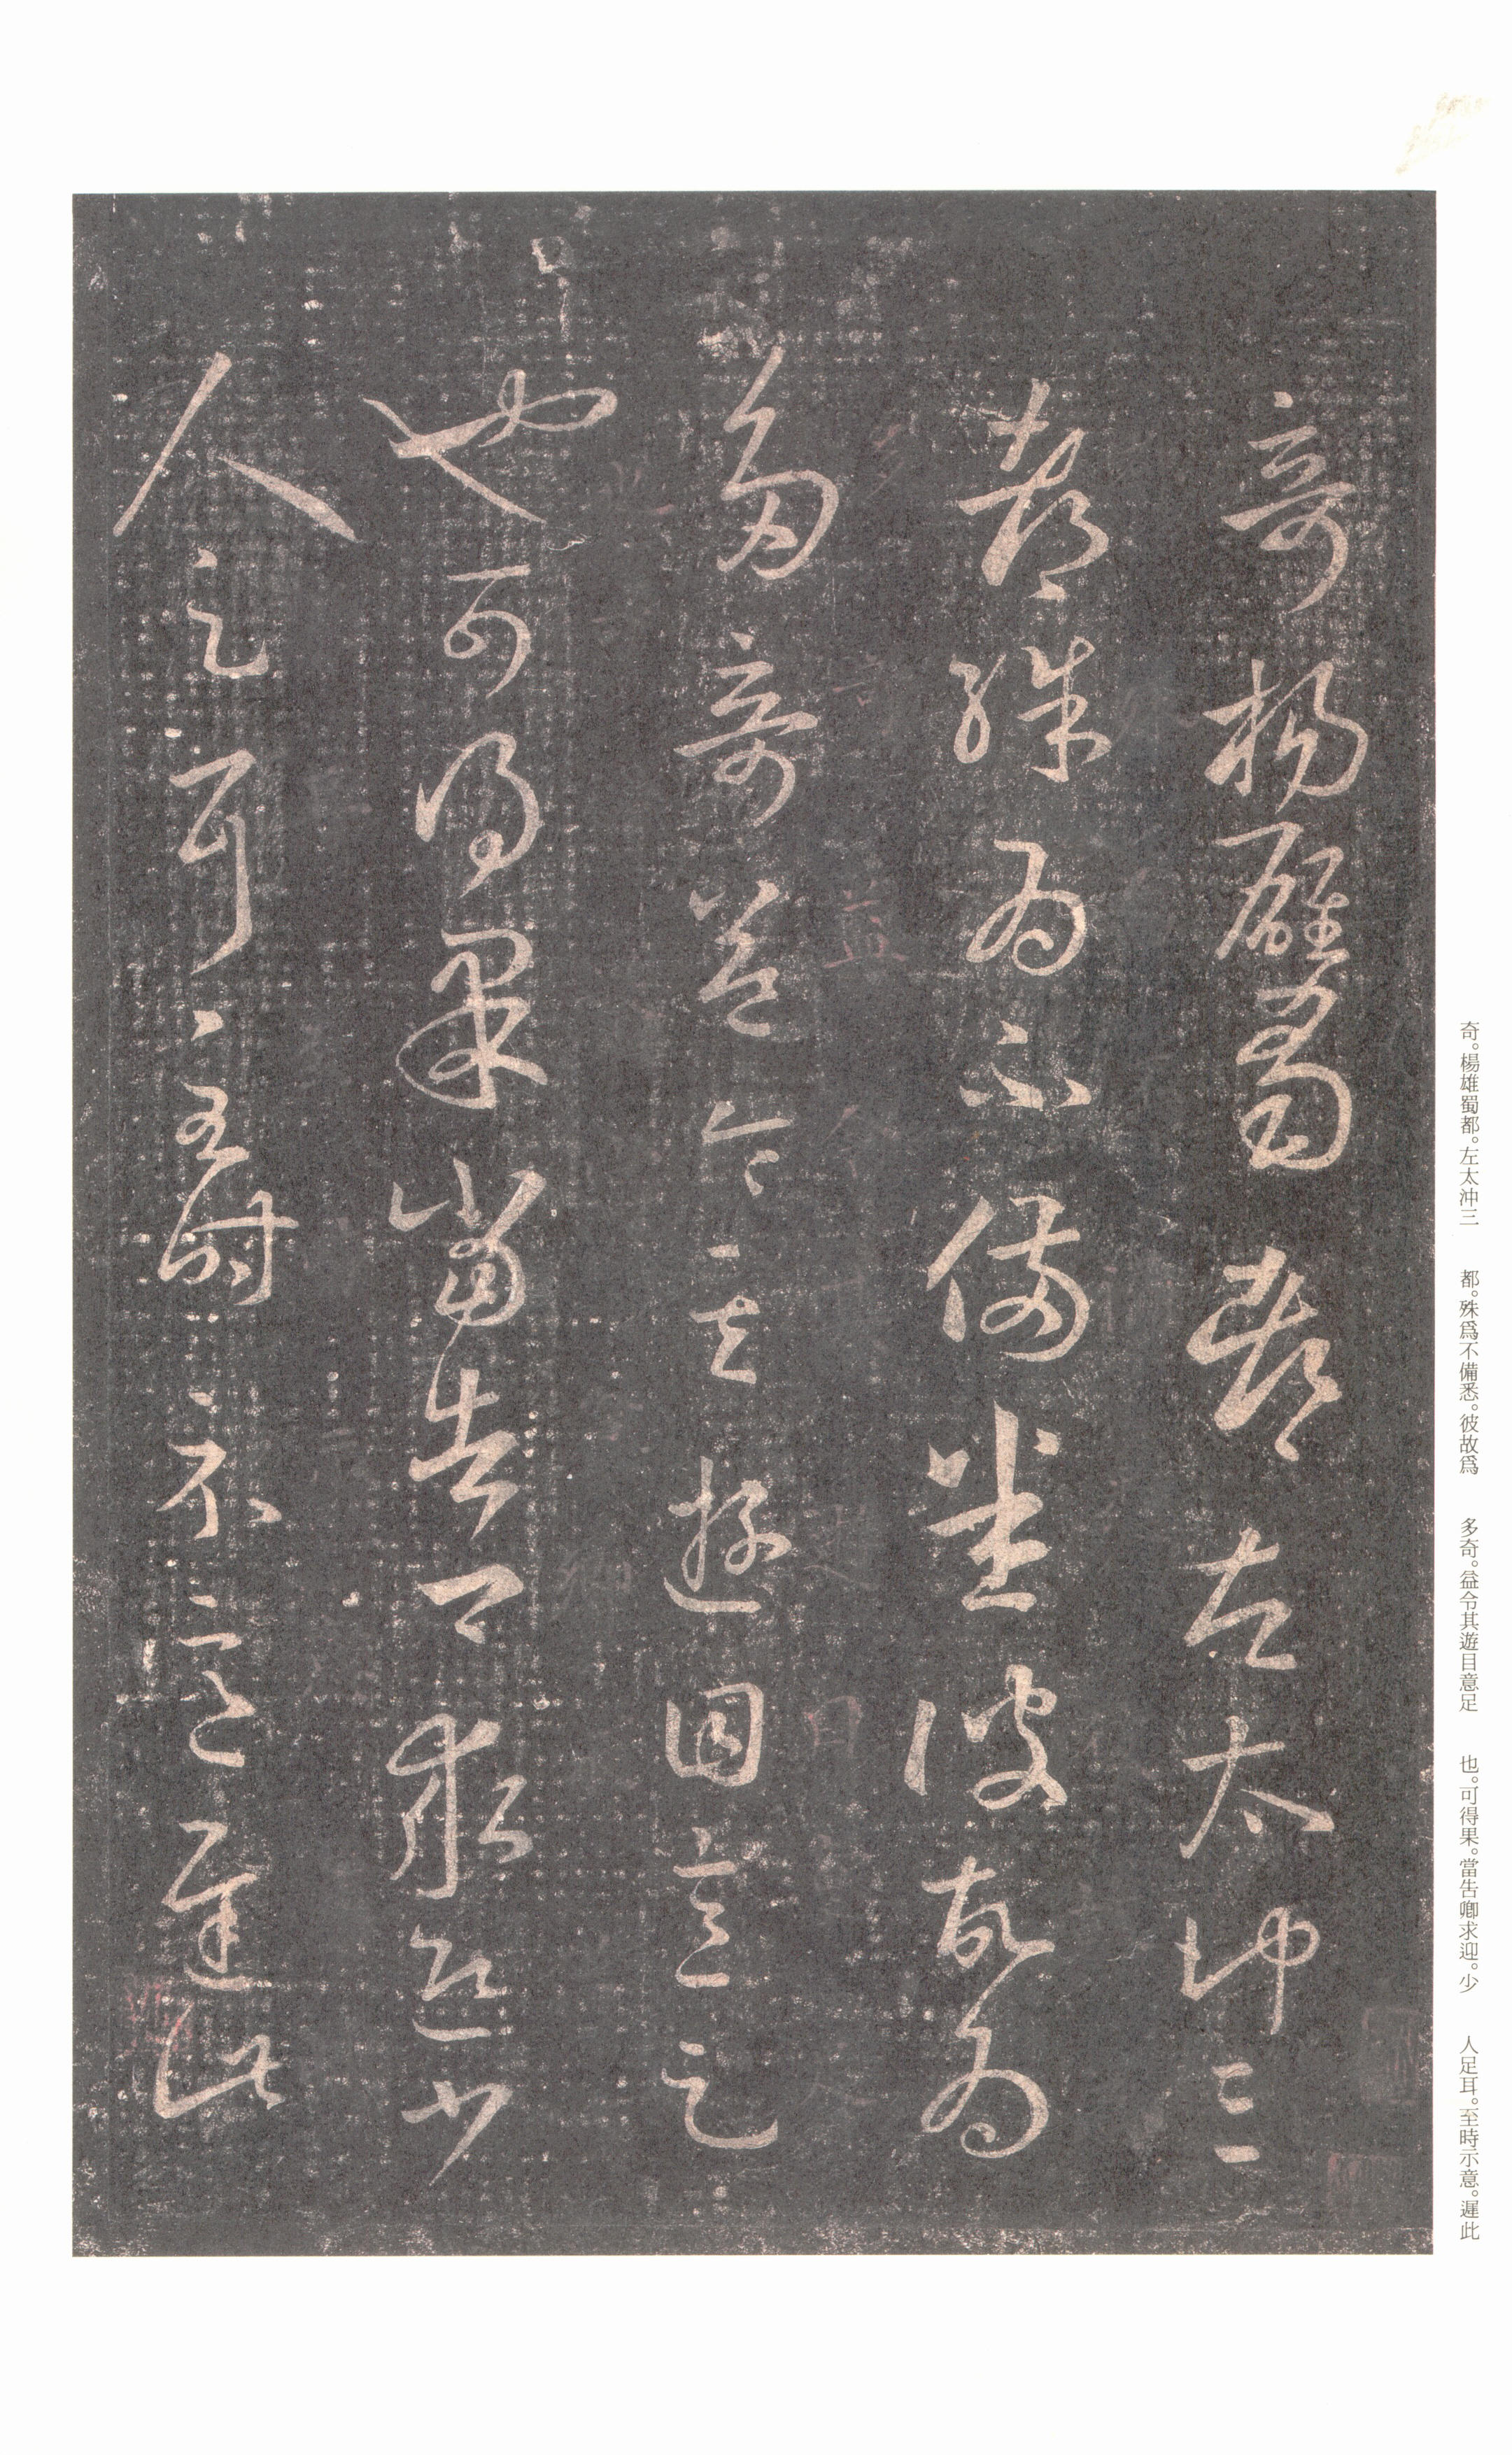 奇楊雄蜀都左太冲三
都殊爲不備悉彼故爲
多奇益令其遊目意足
也可得果當告卿求迎少
人足耳至時示意遲此
奇。楊雄蜀都。左太冲三　都。殊爲不備悉。彼故爲　多奇。益令其遊目意足　也。可得果。當告卿求迎。少　人足耳。至時示意。遲此